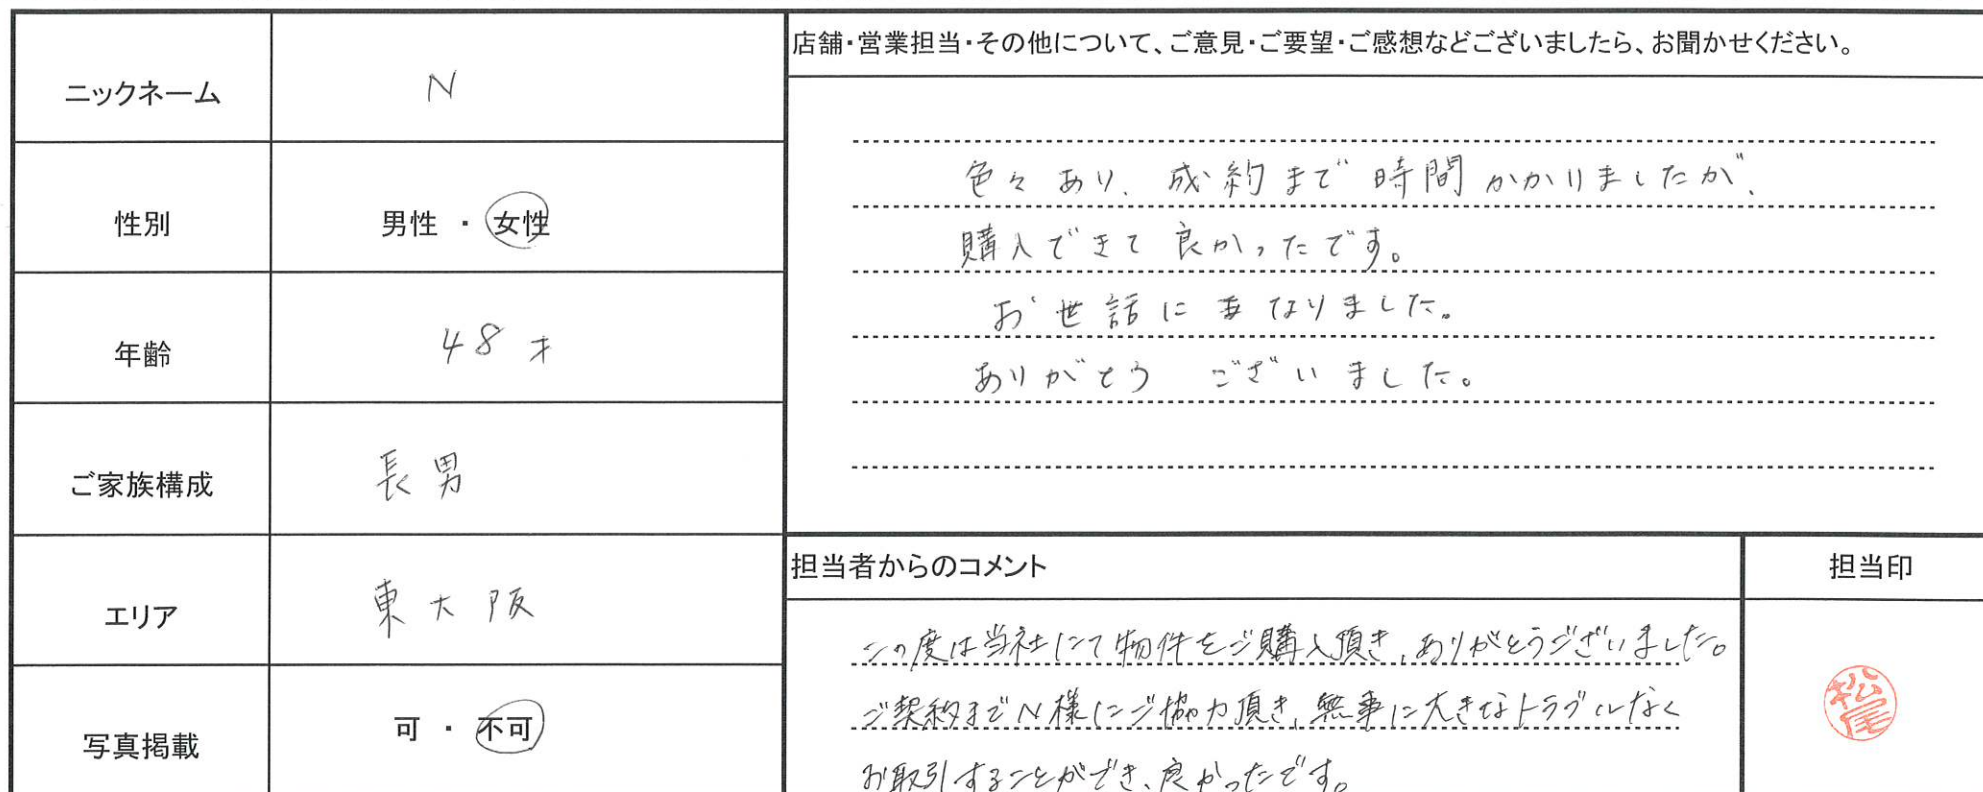 ニックネーム N
性別 男性 ・ 女性
年齢 48才
ご家族構成 長男
エリア 東大阪
写真掲載 可 ・ 不可
店舗・営業担当・その他について、ご意見・ご要望・ご感想などございましたら、お聞かせください。
色々あり、成約まで時間かかりましたが、
購入できて良かったです。
お世話になりました。
ありがとうございました。
担当者からのコメント
この度は当社にて物件をご購入頂き、ありがとうございました。
ご契約までN様にご協力頂き、無事に大きなトラブルなく
お取引することができ、良かったです。
担当印
松尾